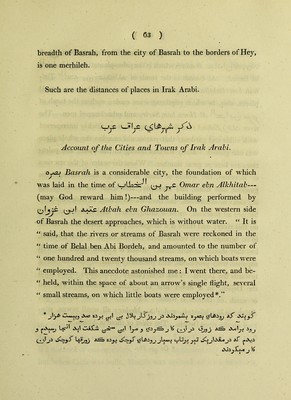 ( 63 )
breadth of Basrah, from the city of Basrah to the borders of Hey,
is one merhileh.
Such are the distances of places in Irak Arabi.
ذكر شهرهاي عراق عرب
Account of the Cities and Towns of Irak Arabi.
بصره Basrah is a considerable city, the foundation of which
was laid in the time of عمر بن الخطاب Omar ebn Alkhitab---
(may God reward him!)---and the building performed by
عتبه ابن غزوان Atbah ebn Ghazouan. On the western side
of Basrah the desert approaches, which is without water. “ It is
“ said, that the rivers or streams of Basrah were reckoned in the
“ time of Belal ben Abi Bordeh, and amounted to the number of
“ one hundred and twenty thousand streams, on which boats were
“ employed. This anecdote astonished me: I went there, and be-
“ held, within the space of about an arrow's single flight, several
“ small streams, on which little boats were employed*.”
* گويند كه رودهاي بصره بشمردند در روزگار بلال بن ابي برده صد وبيست هزار
رود برامد كه زورق دران كار كردي و مرا اين سخن شكفت ايد آنجا رسيدم و
ديدم كه در مقدار يك تير پرتاب بسيار رودهاي كوچك بوده كه زورقها كوچك دران
كار ميكردند